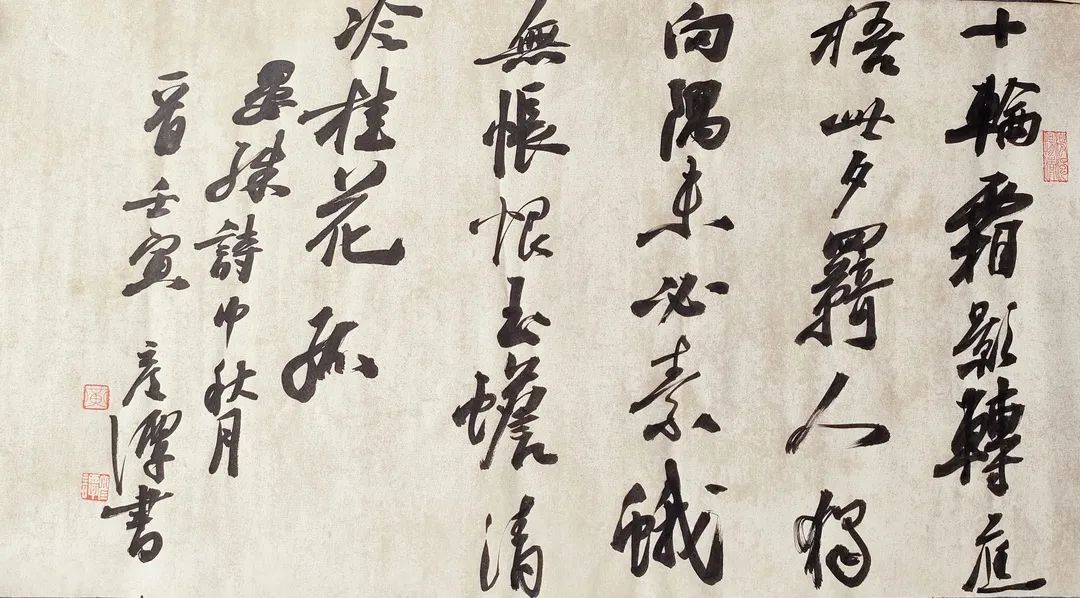 十輪霜影轉庭
梧此夕羈人獨
向隅未必素蛾
無悵恨玉蟾清
冷桂花孤
晏殊詩中秋月
晋壬寅彦潭書